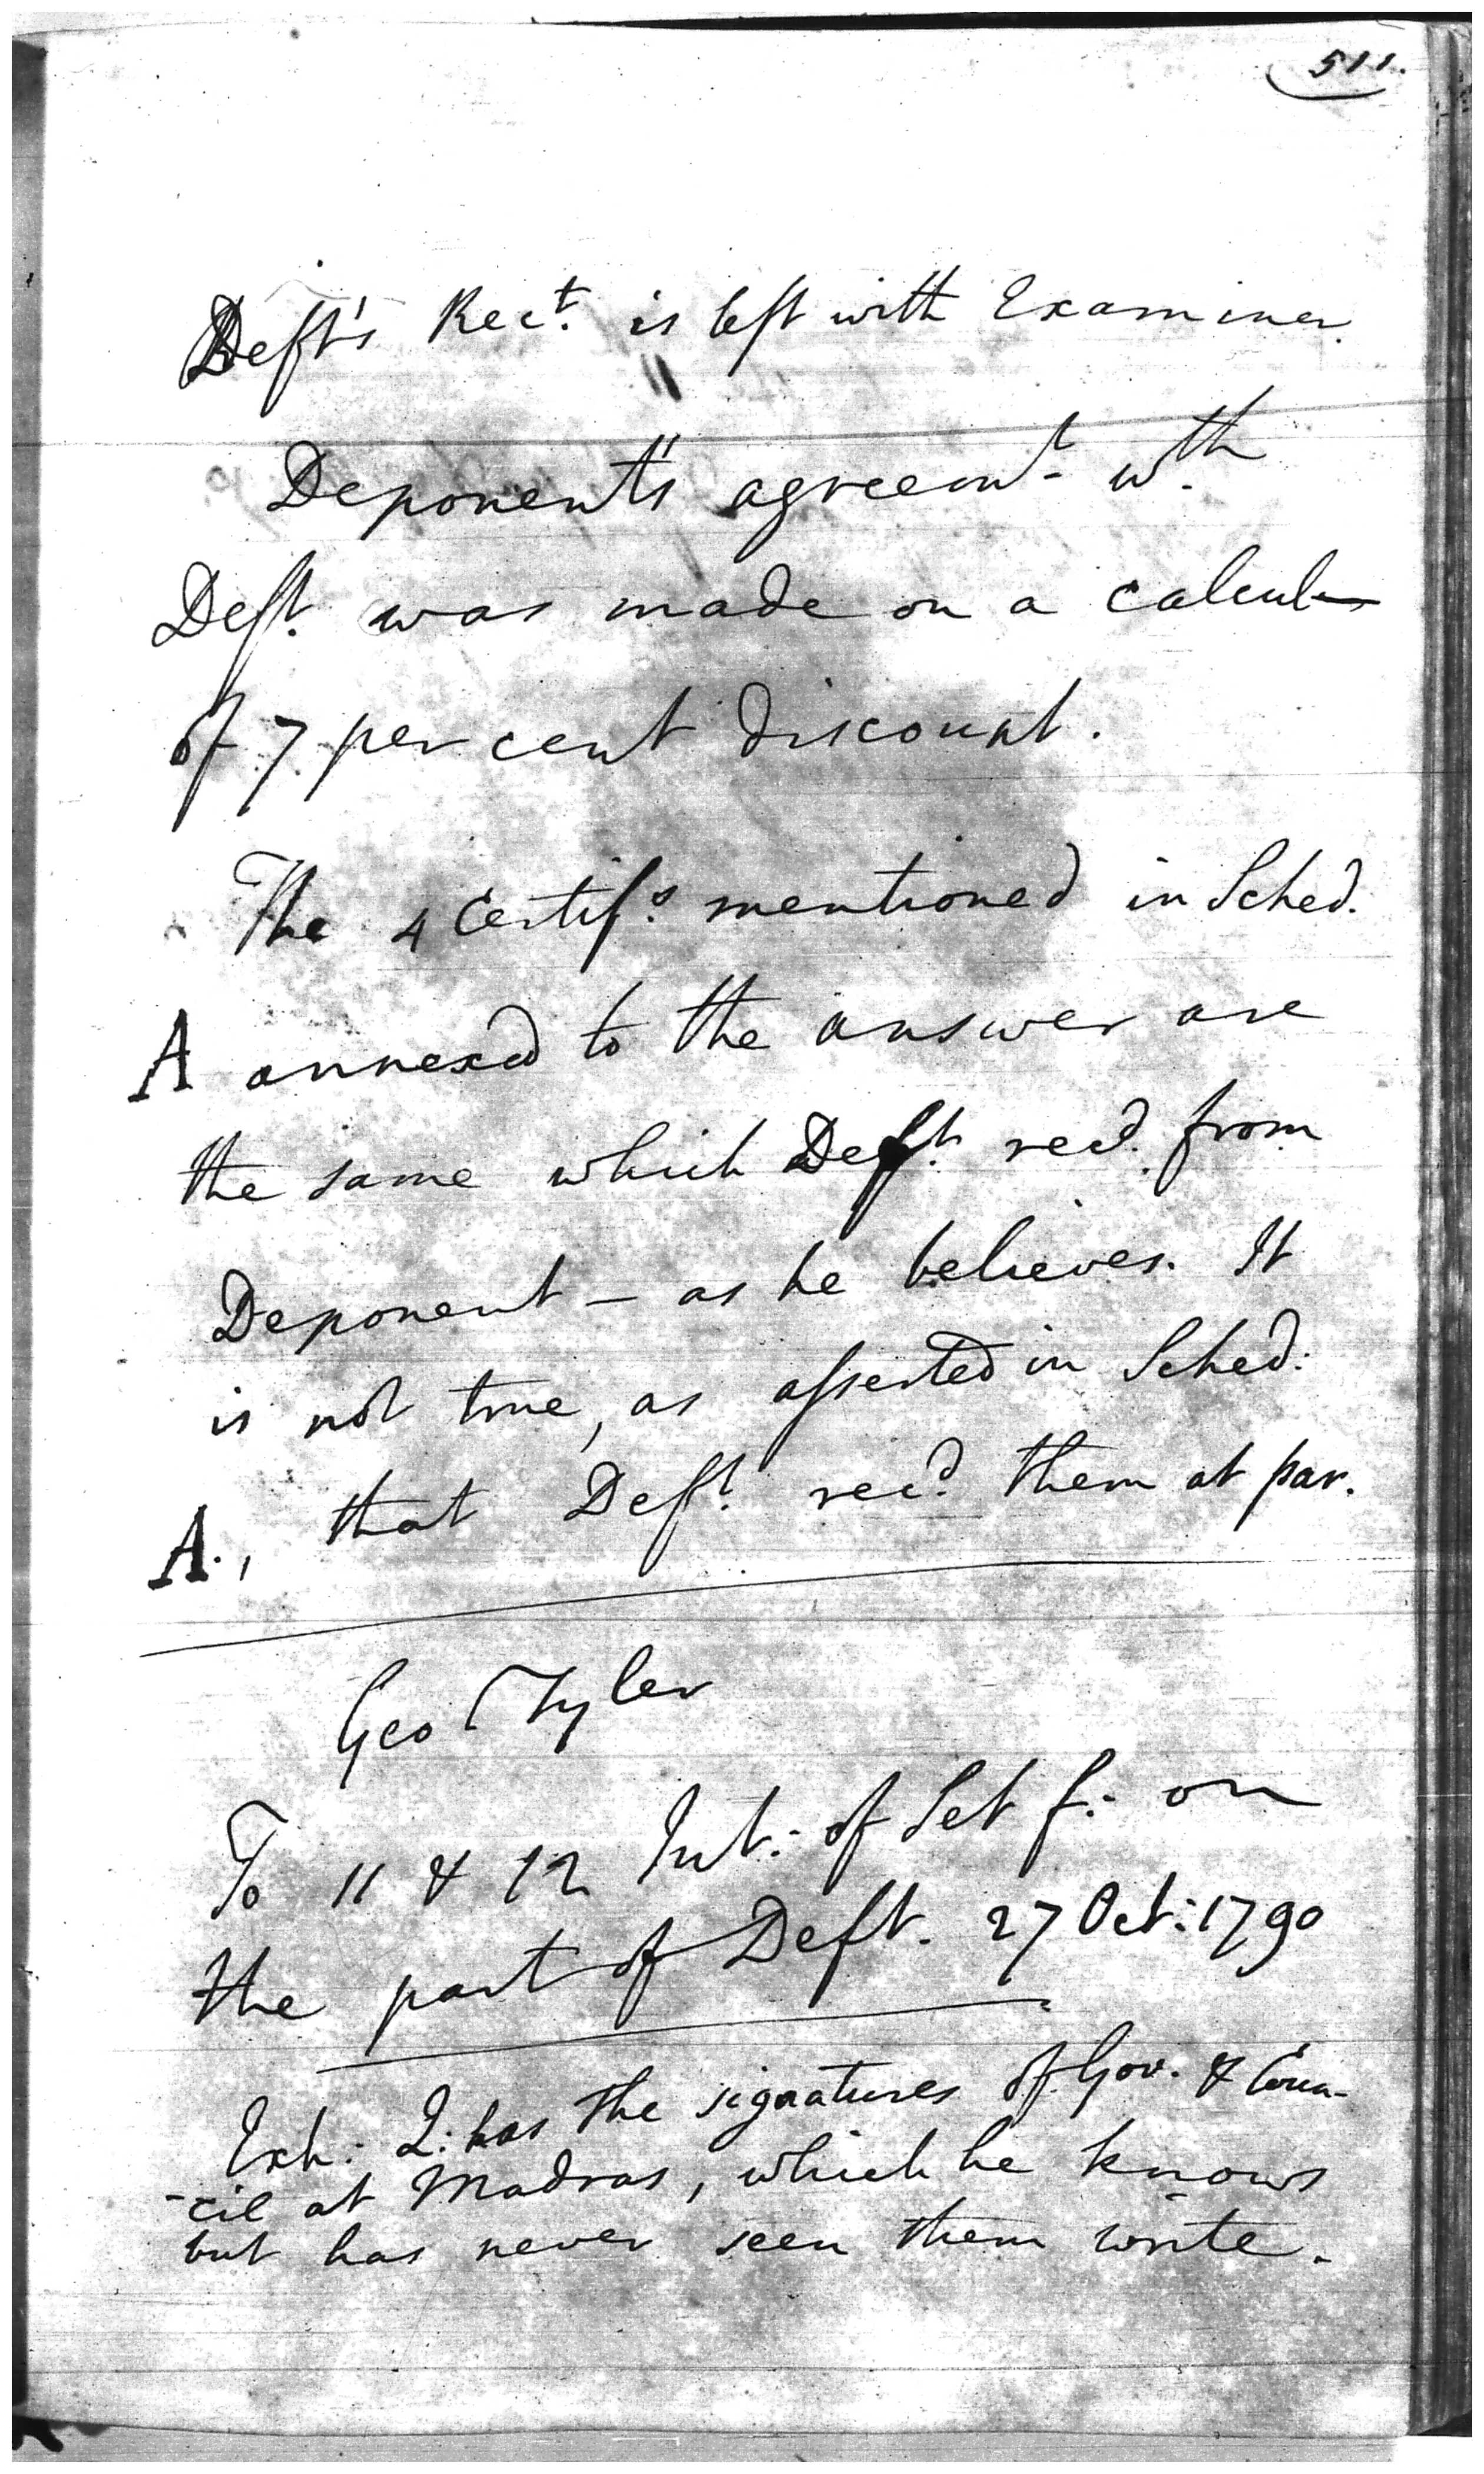 511.
Deft's Rect. is left with Examiner.
Deponent's agreemt. wth.
Deft. was made on a calcul-
of 7 per cent discount.
The 4 Certifs. mentioned in Sched.
A annexed to the answer are
the same which Deft. recd. from
Deponent – as he believes. It
is not true, as asserted in Sched:
A., that Deft. recd. them at par.
Geo Tyler
To 11 & 12 Int: of Set f: on
the part of Deft. 27 Oct: 1790
Exh: Q: has the signatures of Gov. & Coun-
-cil at Madras, which he knows
but has never seen them write.